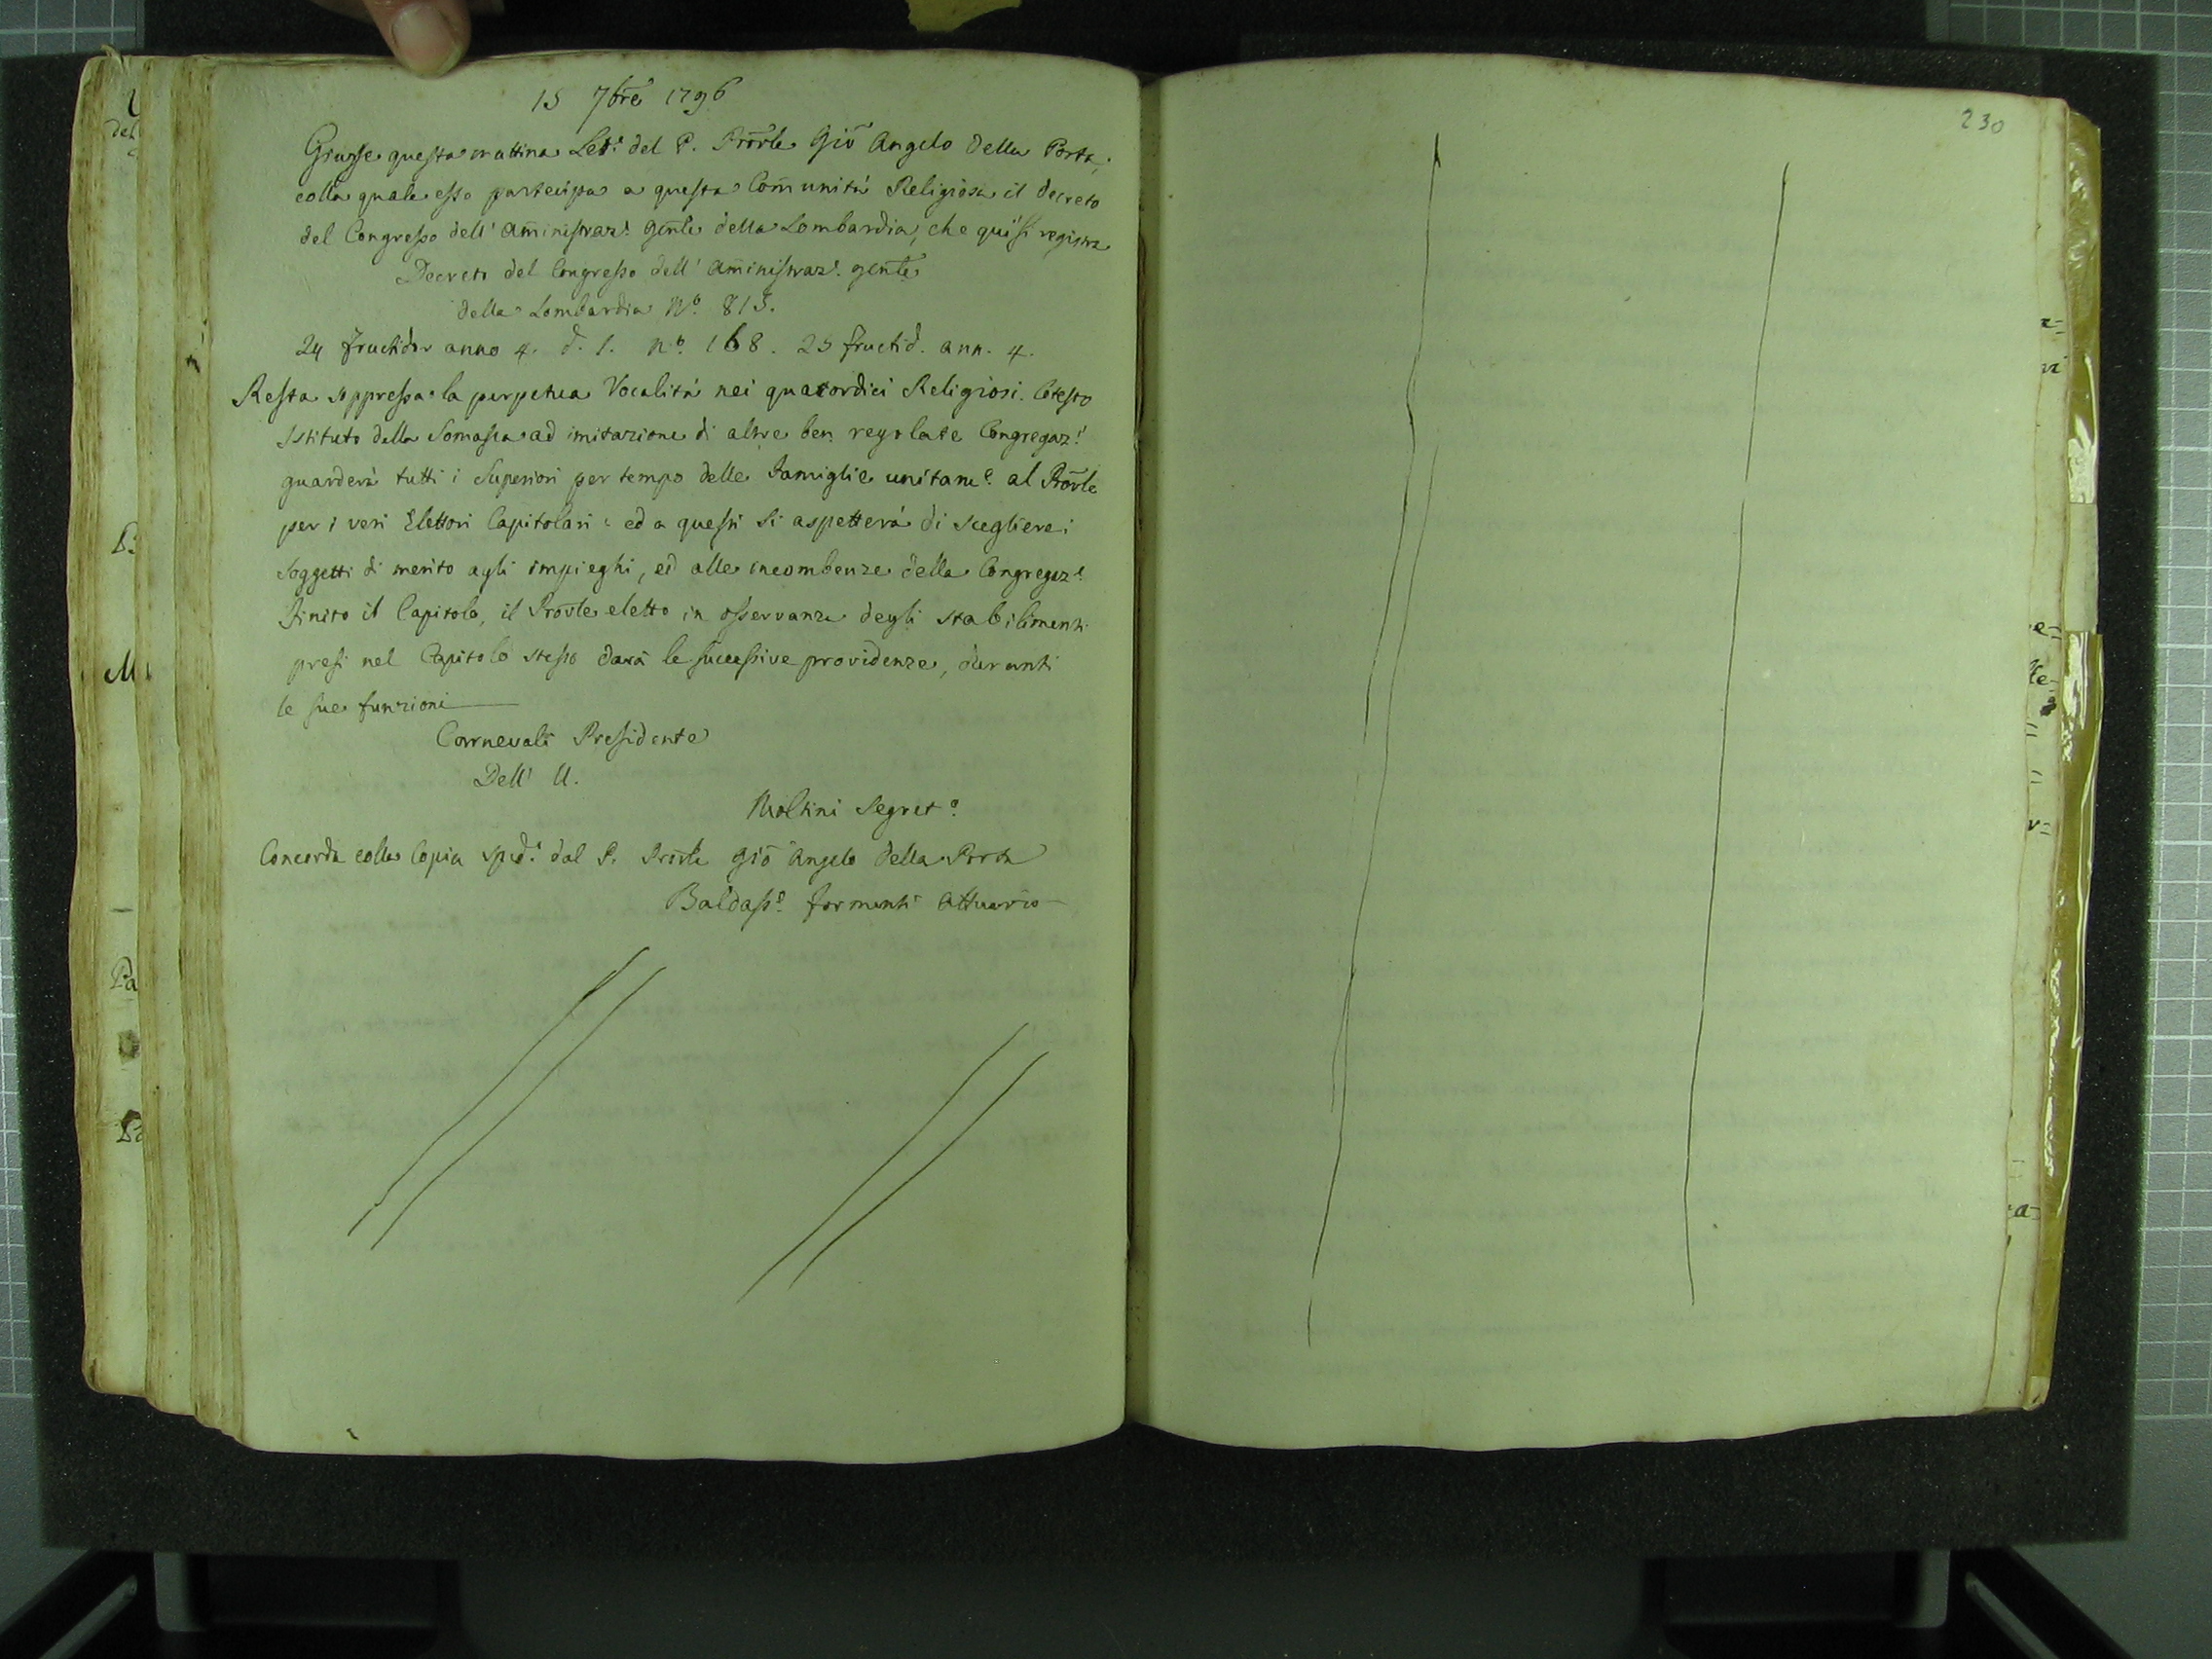 15 7bre 1796
Giunse questa mattina Lett.a del P. Prov̄le Gio Angelo Della Porta,
colla quale esso partecipa a questa Com̄unità Religiosa il decreto
del Congresso dell' Am̄inistraz.e Gen̄le della Lombardia, che quì si registra
Decreto del Congresso dell' Am̄inistraz.e gen̄le
della Lombardia N.o 813.
24 fructidor anno 4. d. 1. n.o 168. 25 fructid. ann. 4.
Resta soppressa la perpetua Vocalità nei quatordici Religiosi. Cotesto
Istituto della Somasca ad imitazione di altre ben regolate Congregaz.i
guarderà tutti i Superiori per tempo delle Famiglie unitam.e al Prov̄le
per i veri Elettori Capitolari: ed a questi si aspetterà di scegliere i
soggetti di merito agli impieghi, ed alle incombenze della Congregaz.e
Finito il Capitolo, il Prov̄le eletto in osservanza degli stabilimenti
presi nel Capitolo stesso darà le successive providenze, duranti
le sue funzioni
Carnevali Presidente
Dell' U.
Moltini Segret.o
Concorda colla Copia sped.a dal P. Prov̄le Gio Angelo Della Porta
Baldass.e formenti Attuario
230